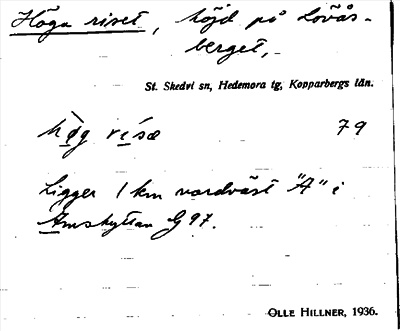 Höga riset, höjd på Lovås-
berget,-
St. Skedvi sn, Hedemora tg, Kopparbergs län.
hǿg rísæ 79
Ligger 1 km nordväst "A" i
Amshyttan G 97.
OLLE HILLNER, 1936.